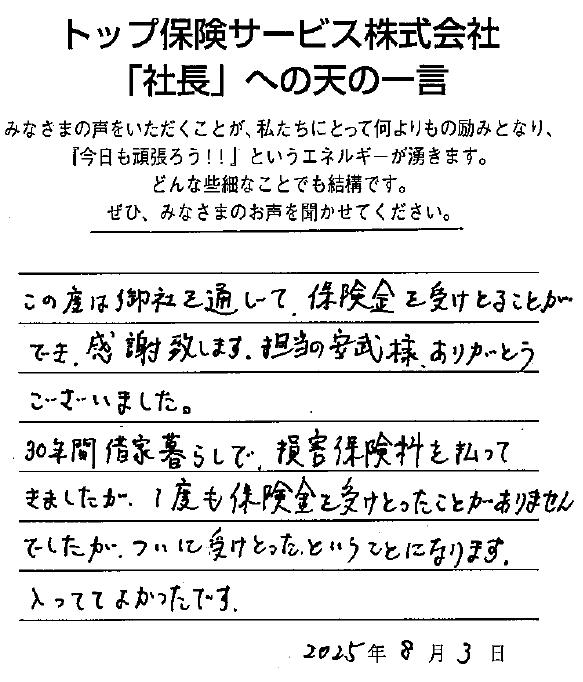 トップ保険サービス株式会社
「社長」への天の一言
みなさまの声をいただくことが、私たちにとって何よりもの励みとなり、
『今日も頑張ろう！！』というエネルギーが湧きます。
どんな些細なことでも結構です。
ぜひ、みなさまのお声を聞かせてください。
この度は御社を通して、保険金を受けとることが
でき、感謝致します。担当の安武様、ありがとう
ございました。
30年間借家暮らしで、損害保険料を払って
きましたが、1度も保険金を受けとったことがありません
でしたが、ついに受けとった、ということになります。
入っててよかったです。
2025年 8月 3日